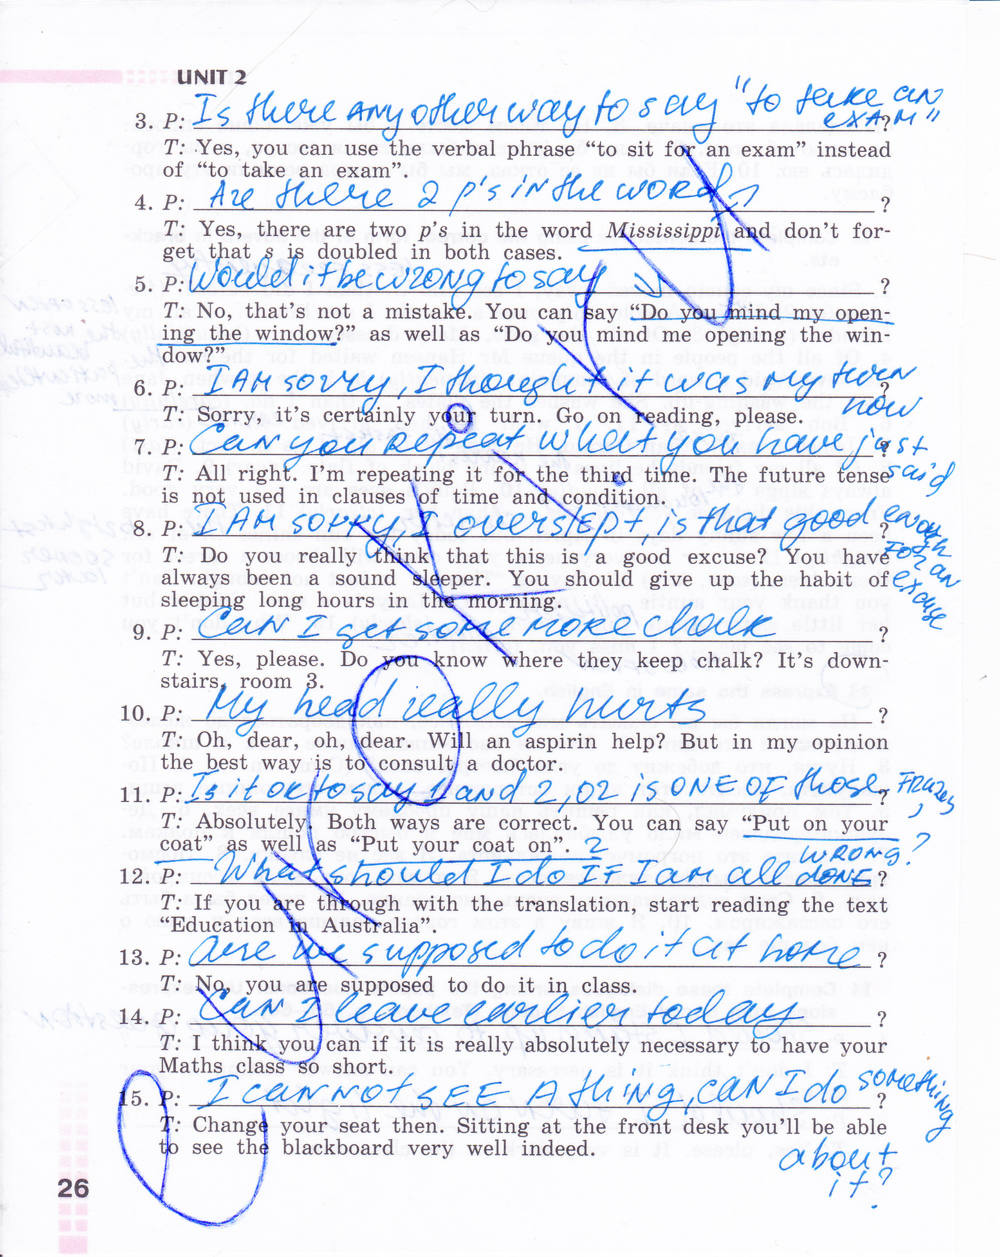 UNIT 2
Is there any other way to say "to take an
3. P: exam"?
T: Yes, you can use the verbal phrase “to sit for an exam” instead
of “to take an exam”.
4. P: Are there 2 p's in the word ?
T: Yes, there are two p’s in the word Mississippi and don’t for-
get that s is doubled in both cases.
5. P: Would it be wrong to say ?
T: No, that’s not a mistake. You can say “Do you mind my open-
ing the window?” as well as “Do you mind me opening the win-
dow?”
6. P: I am sorry, I thought it was my turn ?
now
T: Sorry, it’s certainly your turn. Go on reading, please.
7. P: Can you repeat what you have just ?
said
T: All right. I’m repeating it for the third time. The future tense
is not used in clauses of time and condition.
8. P: I am sorry, I overslept, is that good enough ?
for an
excuse
T: Do you really think that this is a good excuse? You have
always been a sound sleeper. You should give up the habit of
sleeping long hours in the morning.
9. P: Can I get some more chalk ?
T: Yes, please. Do you know where they keep chalk? It’s down-
stairs, room 3.
10. P: My head really hurts ?
T: Oh, dear, oh, dear. Will an aspirin help? But in my opinion
the best way is to consult a doctor.
11. P: Is it ok to say 1 and 2, or is one of those ?
T: Absolutely. Both ways are correct. You can say “Put on your
coat” as well as “Put your coat on”. 2
wrong?
12. P: What should I do if I am all done ?
T: If you are through with the translation, start reading the text
“Education in Australia”.
13. P: are we supposed to do it at home ?
T: No, you are supposed to do it in class.
14. P: Can I leave earlier today ?
T: I think you can if it is really absolutely necessary to have your
Maths class so short.
15. P: I can not see a thing, can I do something ?
T: Change your seat then. Sitting at the front desk you’ll be able
to see the blackboard very well indeed.
about
it?
26